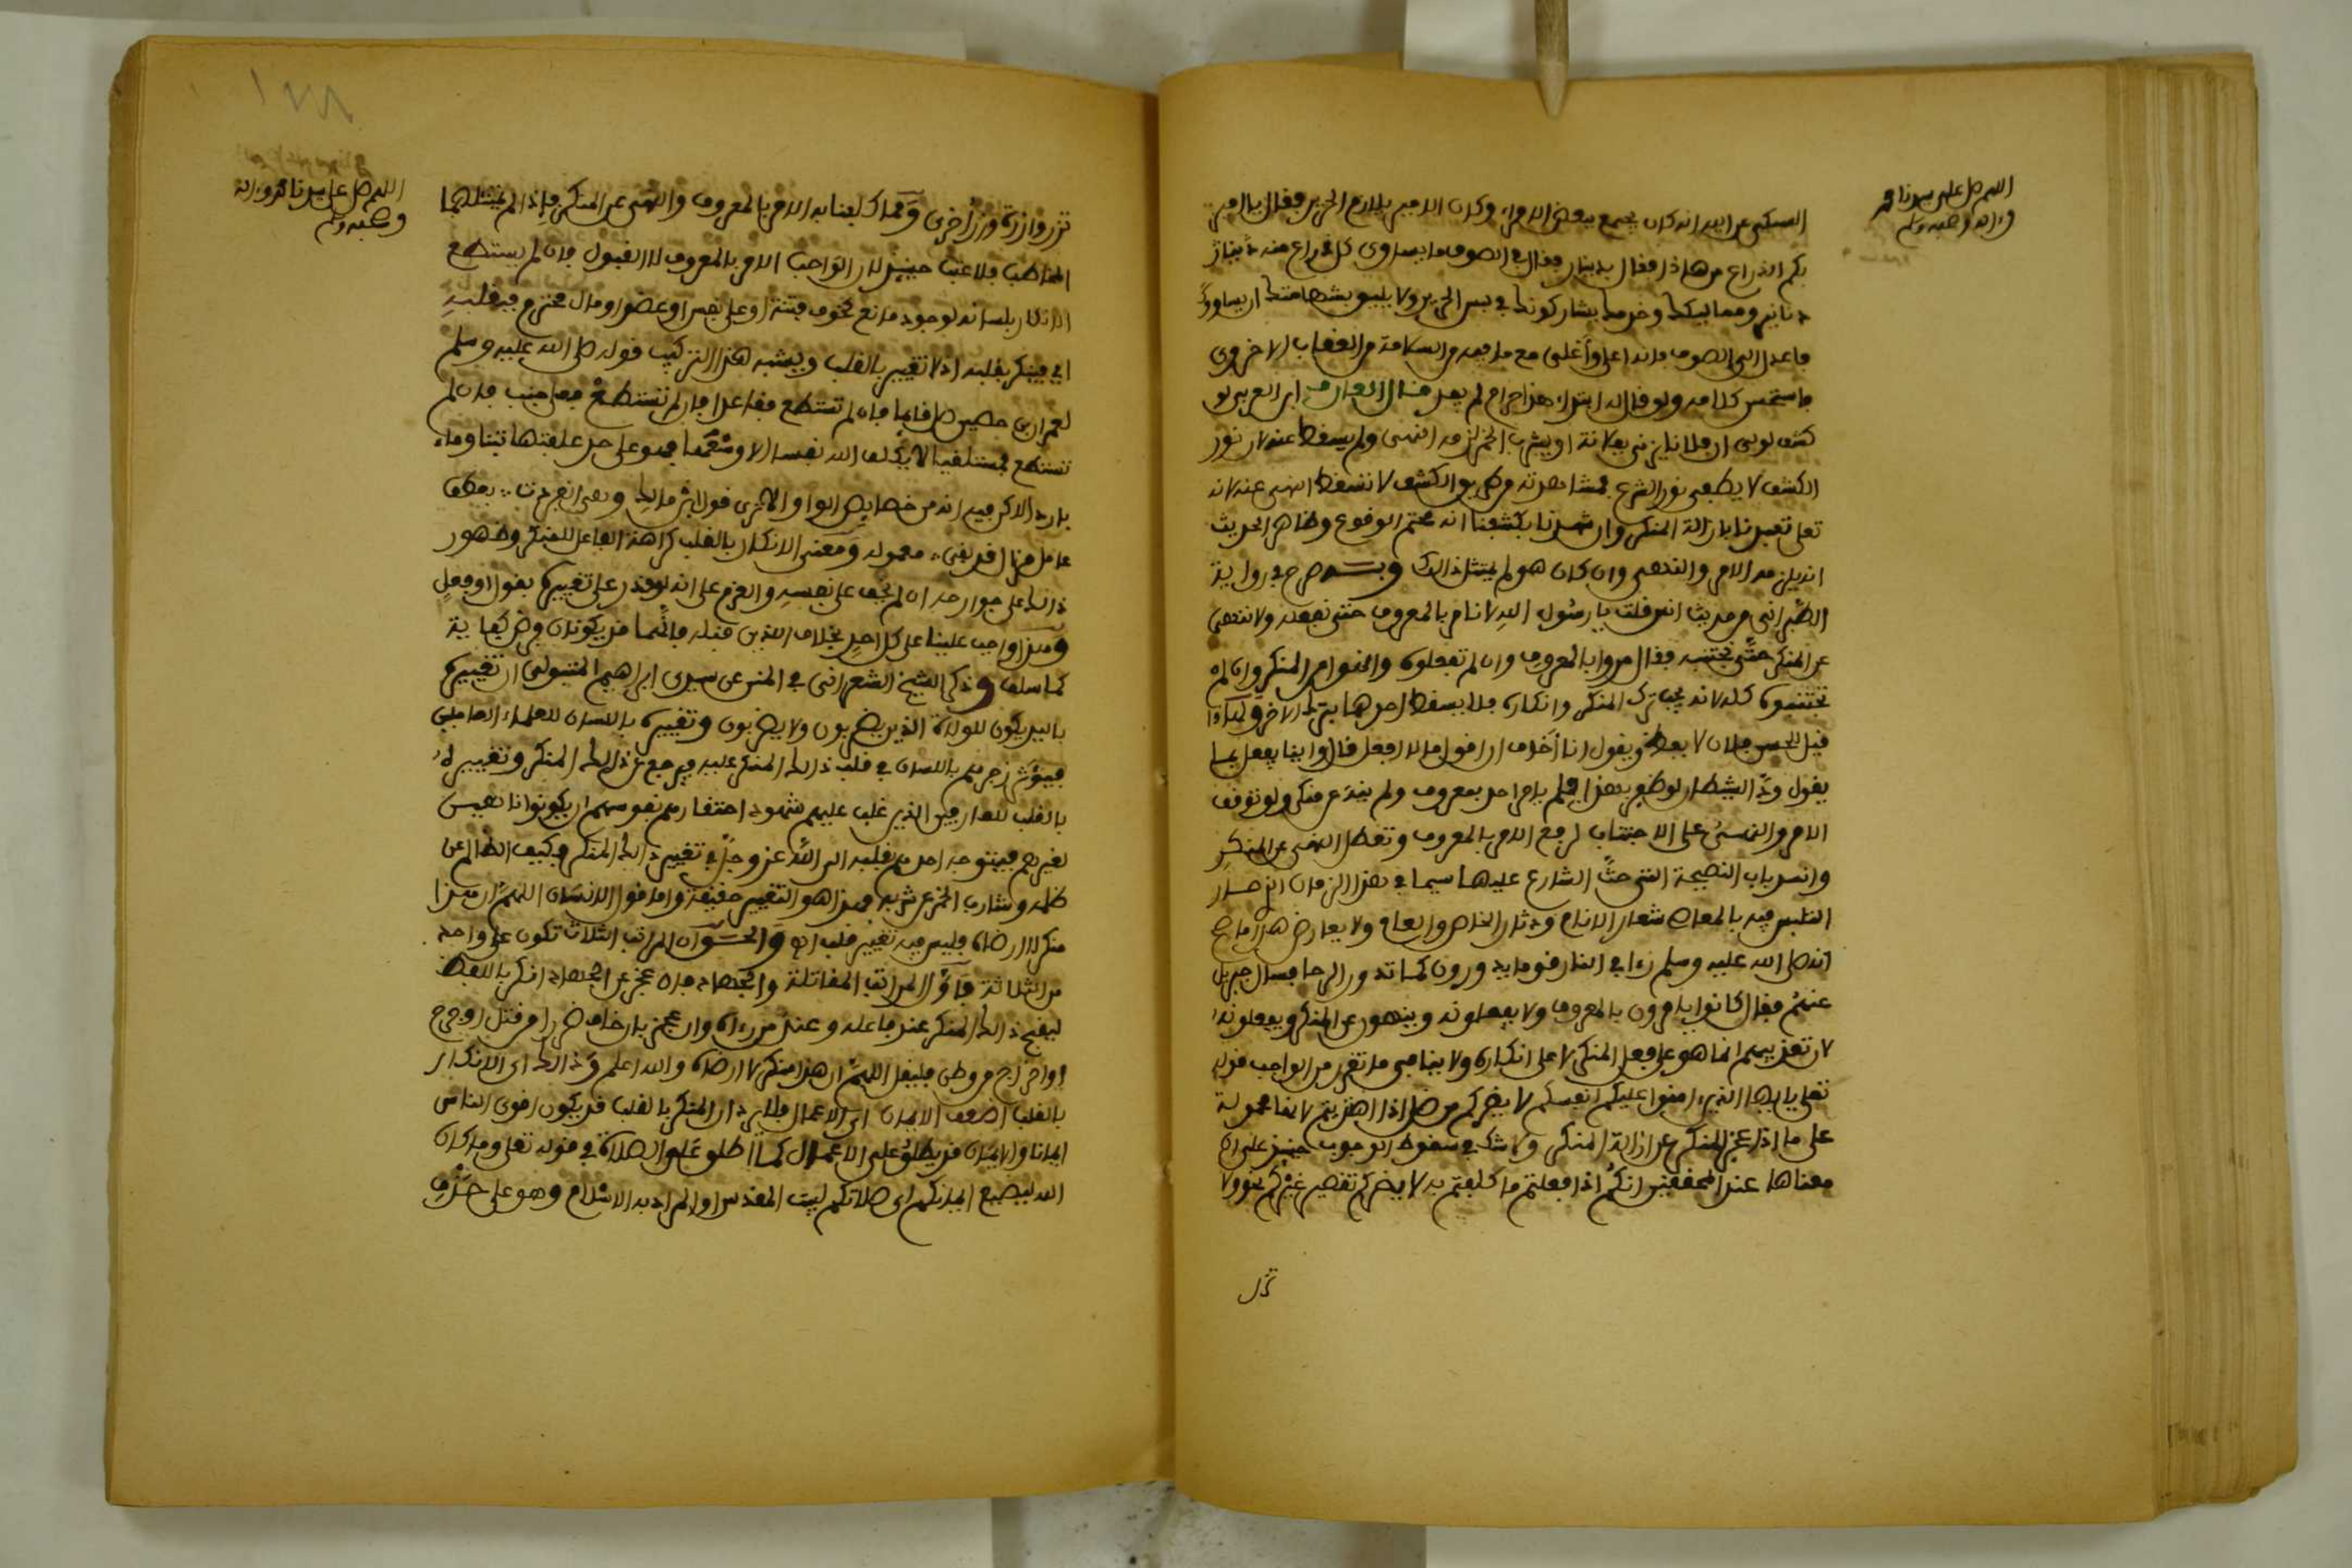 اللهم صل على سيدنا محمد
وءاله وصحبه وسلم
السبكي عن ابيه انه كان يجتمع ببعض الامراء وكان الامير يلازم الحرير فقال يا امير
بكم الذراع من هاذا فقال بدينار فقال في الصوف ما يساوي كل ذراع منه دينار
دنانير ومماليكك وخدمك يشاركونك في لبس الحرير ولا يليق بشهامتك ان يساووك
فاعدل الى الصوف فانه اعلى وأغلى مع ما فيه من السلامة من العقاب الاخروي
فاستحسن كلامه ولو قال له ابتداء هذا حرام لم يفد قال العارف ابن العربي لو
كشف لولي ان فلانا يزني بفلانة او يشرب الخمر لزمه النهي ولم يسقط عنه لان نور
الكشف لا يطفي نور الشرع فمشاهدته من طريق الكشف لا تسقط النهي عنه لانه
تعلى تعبدنا بازالة المنكر وان شهدنا بكشفنا انه محتم الوقوع وظاهر الحديث
انه يلزمه الامر والنهي وان كان هو لم يمتثل ذالك وبه صرح في رواية
الطبراني من حديث انس قلت يا رسول الله لا نامر بالمعروف حتى نفعله ولا ننهى
عن المنكر حتى نجتنبه فقال مروا بالمعروف وان لم تفعلوه وانهوا عن المنكر وان لم
تجتنبوه كله لانه يجب ترك المنكر وانكاره فلا يسقط احدهما بترك الاخر ولهاذا
قيل للحسن فلان لا يعظ ويقول انا أخاف ان اقول ما لا افعل قال واينا يفعل ما
يقول ود الشيطان لو ظفر بهذا فلم يامر احد بمعروف ولم ينه عن منكر ولو توقف
الامر والنهي على الاجتناب لرفع الامر بالمعروف وتعطل النهي عن المنكر
وانسد باب النصيحة التي حث الشارع عليها سيما في هذا الزمان الذي صار
التلبس فيه بالمعاصي شعار الانام ودثار الخاص والعام ولا يعارض هذا ما صح
انه صلى الله عليه وسلم رءا في النار قوما يدورون كما تدور الرحا فسال جبريل
عنهم فقال كانوا يامرون بالمعروف ولا يفعلونه وينهون عن المنكر ويفعلونه
لان تعذيبهم انما هو على فعل المنكر لا على انكاره ولا ينافي ما تقرر من الواجب قوله
تعلى يا ايها الذين ءامنوا عليكم انفسكم لا يضركم من ضل اذا اهتديتم لانها محمولة
على ما اذا عجز المنكر عن ازالة المنكر ولا شك في سقوط الوجوب حينئذ على ان
معناها عند المحققين انكم اذا فعلتم ما كلفتم به لا يضركم تقصير غيركم نحو ولا
تزر
اللهم صل على سيدنا محمد وءاله
وصحبه وسلم
تزر وازرة وزر أخرى ومما كلفنا به الامر بالمعروف والنهي عن المنكر فاذا لم يمتثلهما
المخاطب فلا عتب حينئذ لان الواجب الامر بالمعروف لا القبول فان لم يستطع
الانكار بلسانه لوجود مانع كخوف فتنة او على نفس او عضو او مال محترم فبقلبه
اي فينكر بقلبه اذ لا تغيير بالقلب ويشبه هذا التركيب قوله صلى الله عليه وسلم
لعمران بن حصين صل قائما فان لم تستطع فقاعدا فان لم تستطع فعلى جنب فان لم
تستطع فمستلقيا لا يكلف الله نفسا الا وسعها فهو على حد علفتها تبنا وماء
باردا لاكن فيه انه من خصايص الواو الاترى قول ابن مالك وهي انفردت بعطف
عامل مزال قد بقي معموله ومعنى الانكار بالقلب كراهة الفاعل للمنكر وظهور
ذالك على جوارحه ان لم يخف على نفسه والعزم على انه لو قدر على تغييره بقول او فعل
وهذا واجب علينا على كل احد بخلاف الذين قبله فانهما قد يكونان فرض كفاية
كما سلف وذكر الشيخ الشعراني في المنن عن سيدي ابراهيم المتبولي ان تغييره
باليد يكون للولاة الذين يضربون ولا يضربون وتغييره باللسان للعلماء العاملين
فيوثر زجرهم باللسان في قلب ذالك المنكر عليه فيرجع عن ذالك المنكر وتغييره
بالقلب للعارفين الذين غلب عليهم شهود احتقارهم نفوسهم ان يكونوا ناهين
لغيرهم فيتوجه احدهم بقلبه الى الله عز وجل في تغيير ذالك المنكر فيكف الظالم عن
ظلمه وشارب الخمر عن شربه فهذا هو التغيير حقيقة واما قول الانسان اللهم ان هذا
منكر لا ارضاه فليس فيه تغيير قلب اه والحق ان المراتب الثلاث تكون على واحد
من الثلاثة فأول المراتب المقاتلة والجهاد فان عجز عن الجهاد انكر باللفظ
ليقبح ذالك المنكر عند فاعله وعند من رءاه وان عجز بان خاف ضررا من قتل او جرح
او اخراج من وطن فليقل اللهم ان هذا منكر لا ارضاه والله اعلم وذالك اي الانكار
بالقلب اضعف الايمان اي الاعمال فلا يرد ان المنكر بالقلب قد يكون اقوى الناس
ايمانا والايمان قد يطلق على الاعمال كما اطلق على الصلاة في قوله تعلى وما كان
الله ليضيع ايمانكم اي صلاتكم لبيت المقدس او المراد به الاسلام وهو على حذف